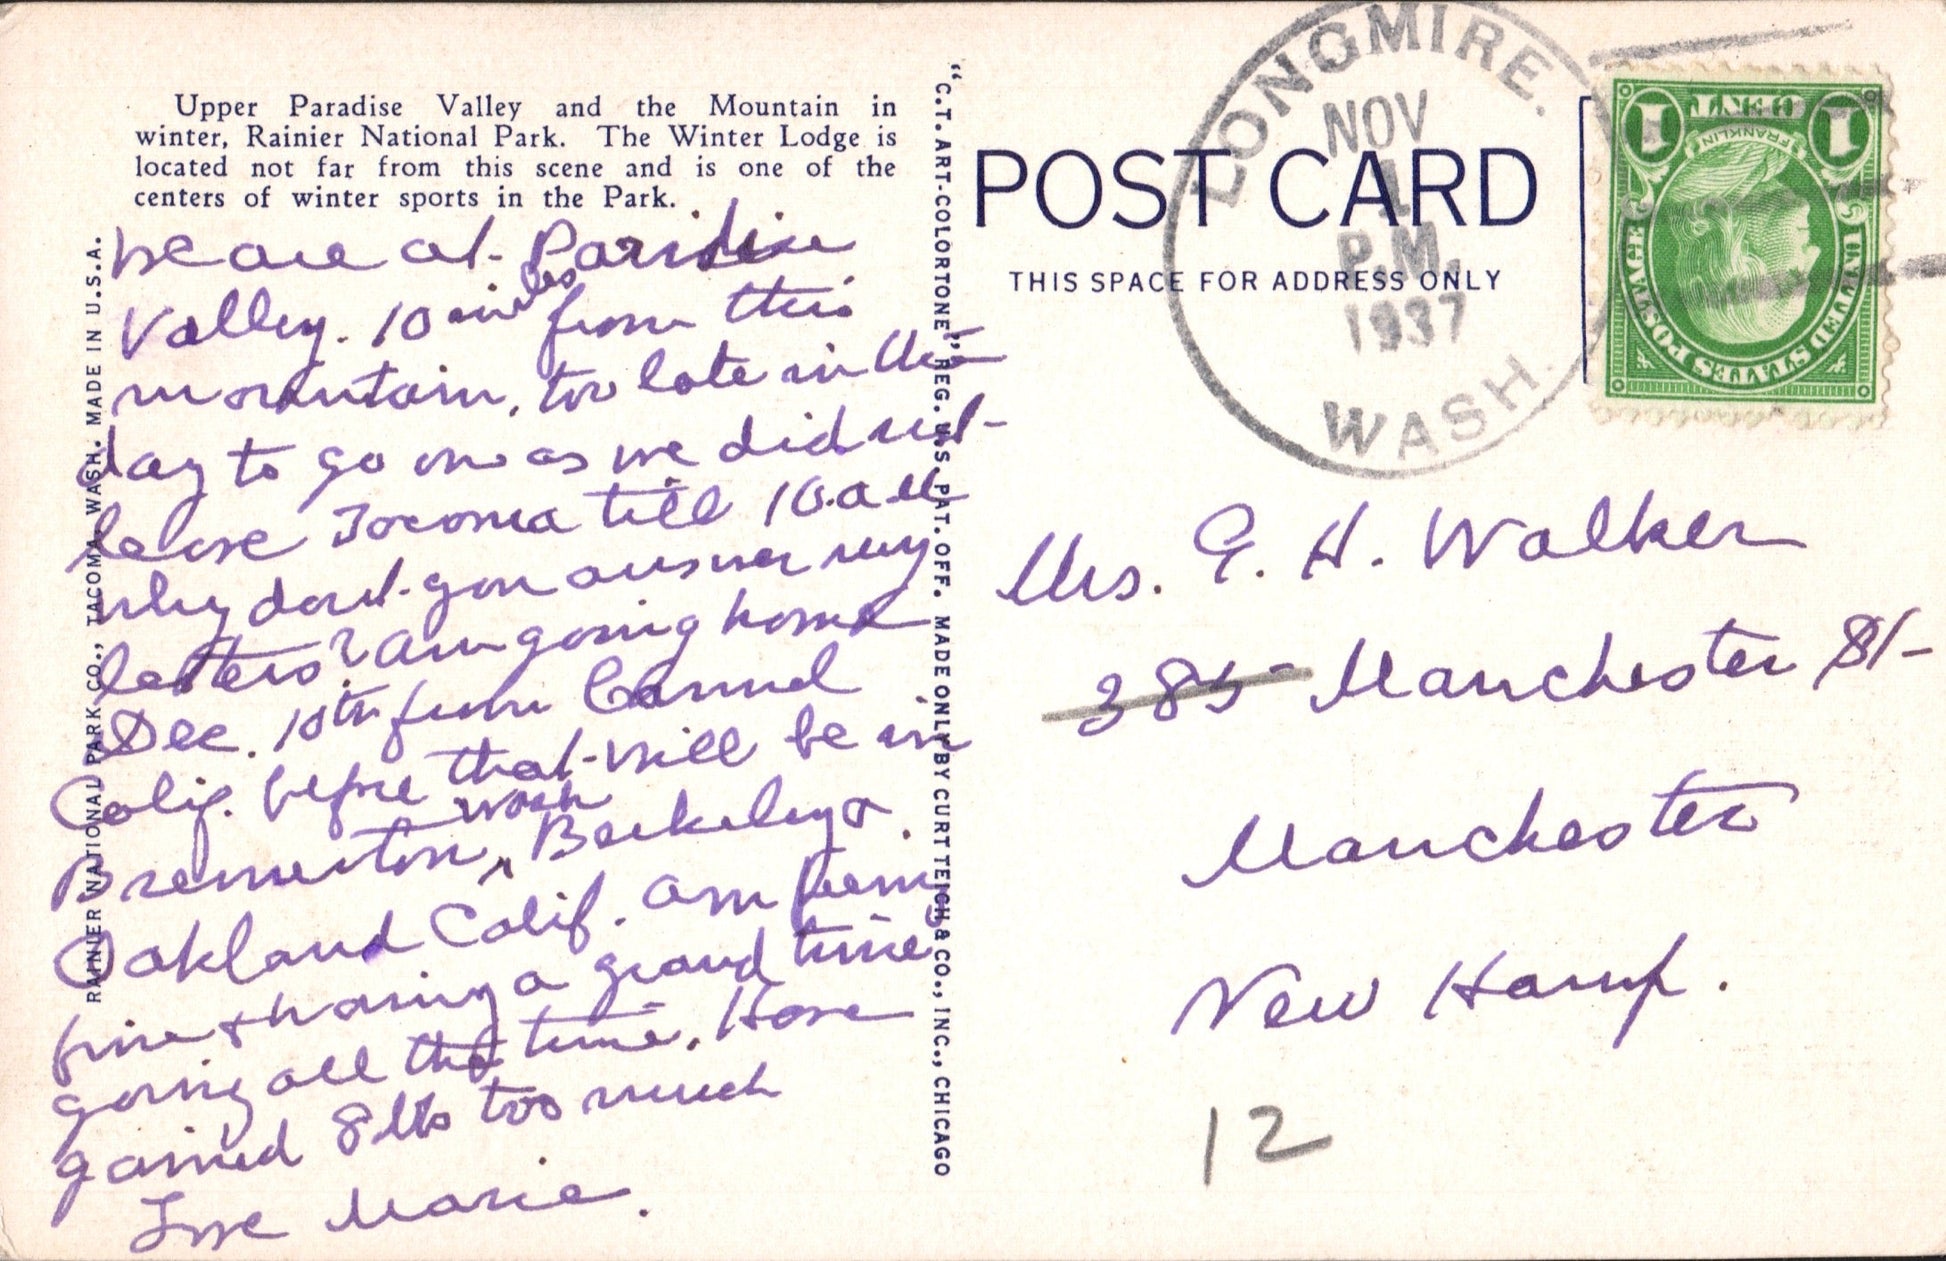 Upper Paradise Valley and the Mountain in
winter, Rainier National Park. The Winter Lodge is
located not far from this scene and is one of the
centers of winter sports in the Park.
We are at Paridise
Valley. 10 miles from this
mountain, too late in the
day to go on as we did not
leave Tocoma till 10. a M
why dont you answer my
letters? am going home
Dec. 10th from Carmel
Calif. before that will be in
Bremerton, wash Berkeley &
Oakland Calif. am feeling
fine & having a grand time
going all the time. Have
gained 8 lbs too much
Love Marie.
RAINIER NATIONAL PARK CO., TACOMA, WASH. MADE IN U.S.A.
"C.T. ART-COLORTONE" REG. U.S. PAT. OFF. MADE ONLY BY CURT TEICH & CO., INC., CHICAGO
POST CARD
THIS SPACE FOR ADDRESS ONLY
LONGMIRE.
NOV
1
P.M.
1937
WASH.
1 ONE CENT 1
FRANKLIN
UNITED STATES POSTAGE
Mrs. G. H. Walker
385 Manchester St
Manchester
New Hamp.
12